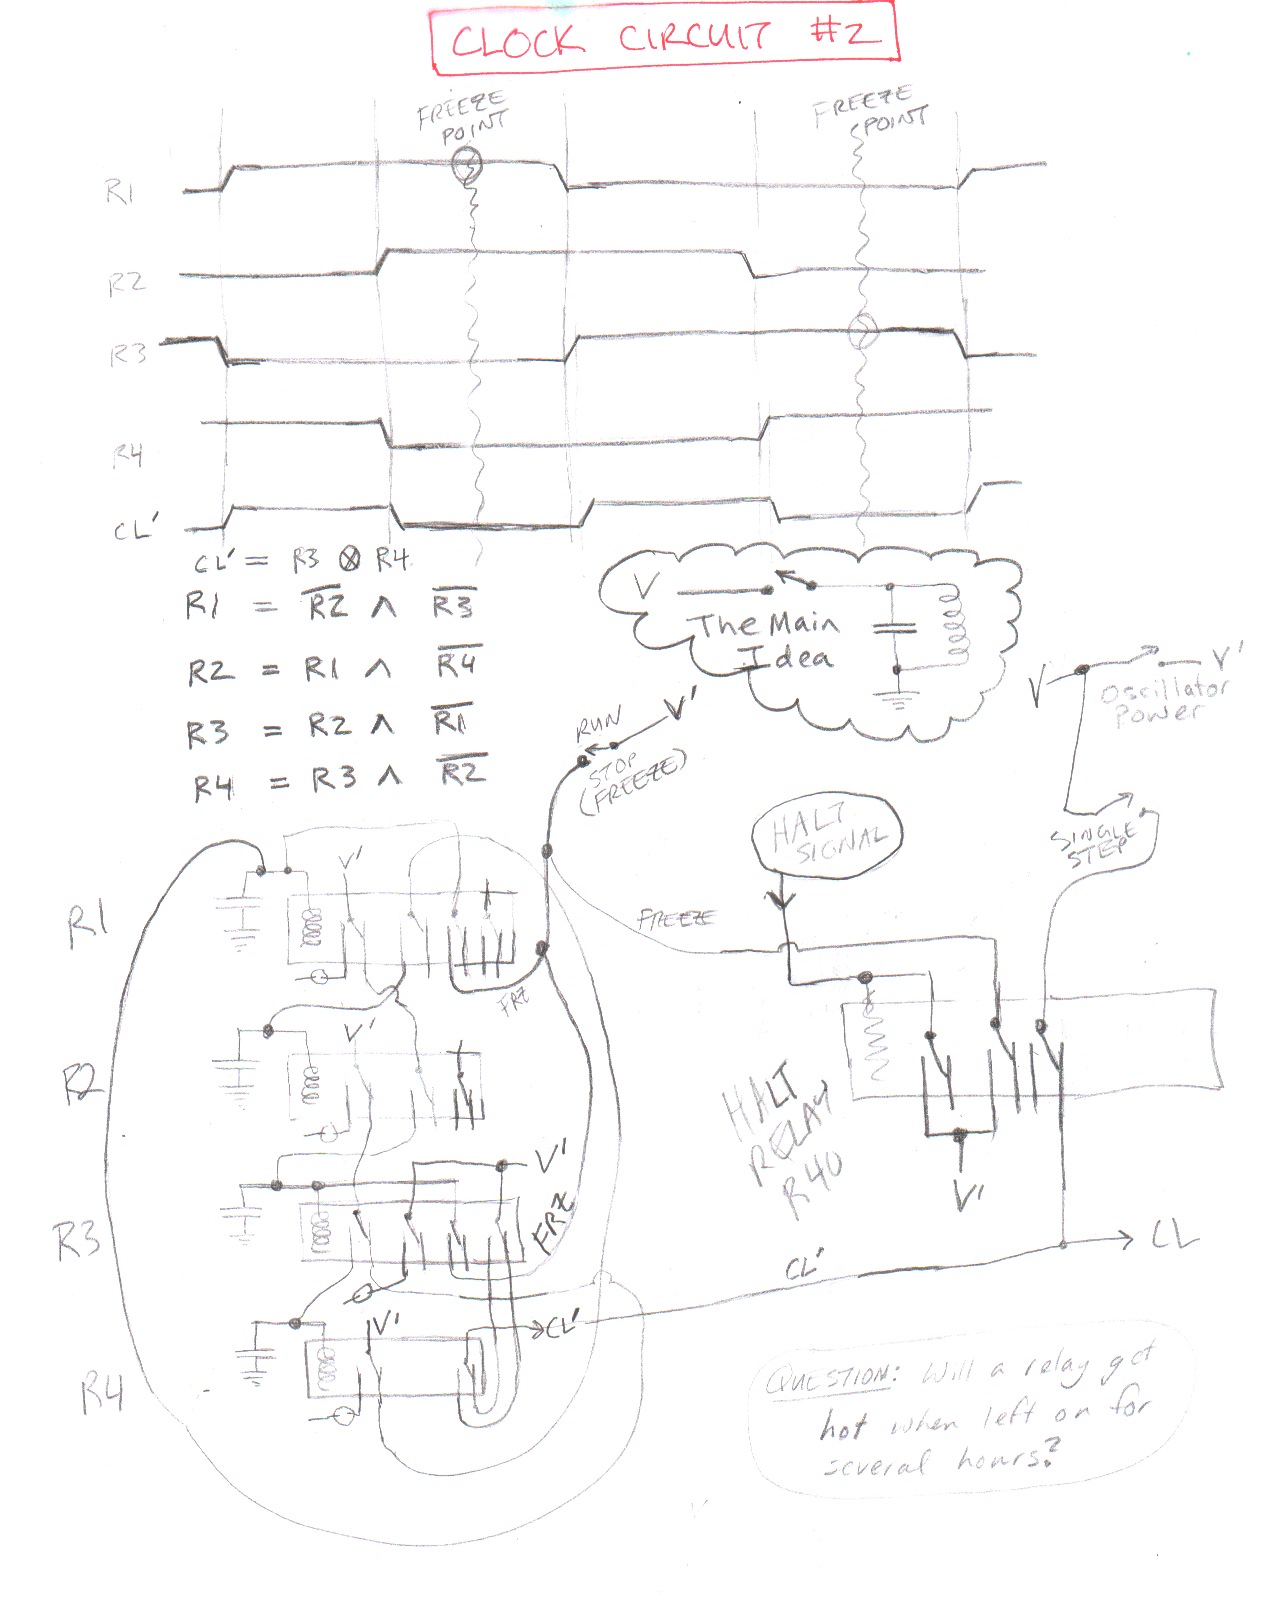 CLOCK CIRCUIT #2
FREEZE
POINT
FREEZE
POINT
R1
R2
R3
R4
CL'
CL' = R3 ⊗ R4
R1 = R̅2̅ ∧ R̅3̅
R2 = R1 ∧ R̅4̅
R3 = R2 ∧ R̅1̅
R4 = R3 ∧ R̅2̅
V
The Main
Idea
V
V'
Oscillator
Power
SINGLE
STEP
RUN
V'
STOP
(FREEZE)
HALT
SIGNAL
FREEZE
R1
V'
FRZ
R2
V'
R3
V'
FRZ
R4
V'
CL'
HALT
RELAY
R40
V'
CL'
CL
QUESTION: Will a relay get
hot when left on for
several hours?